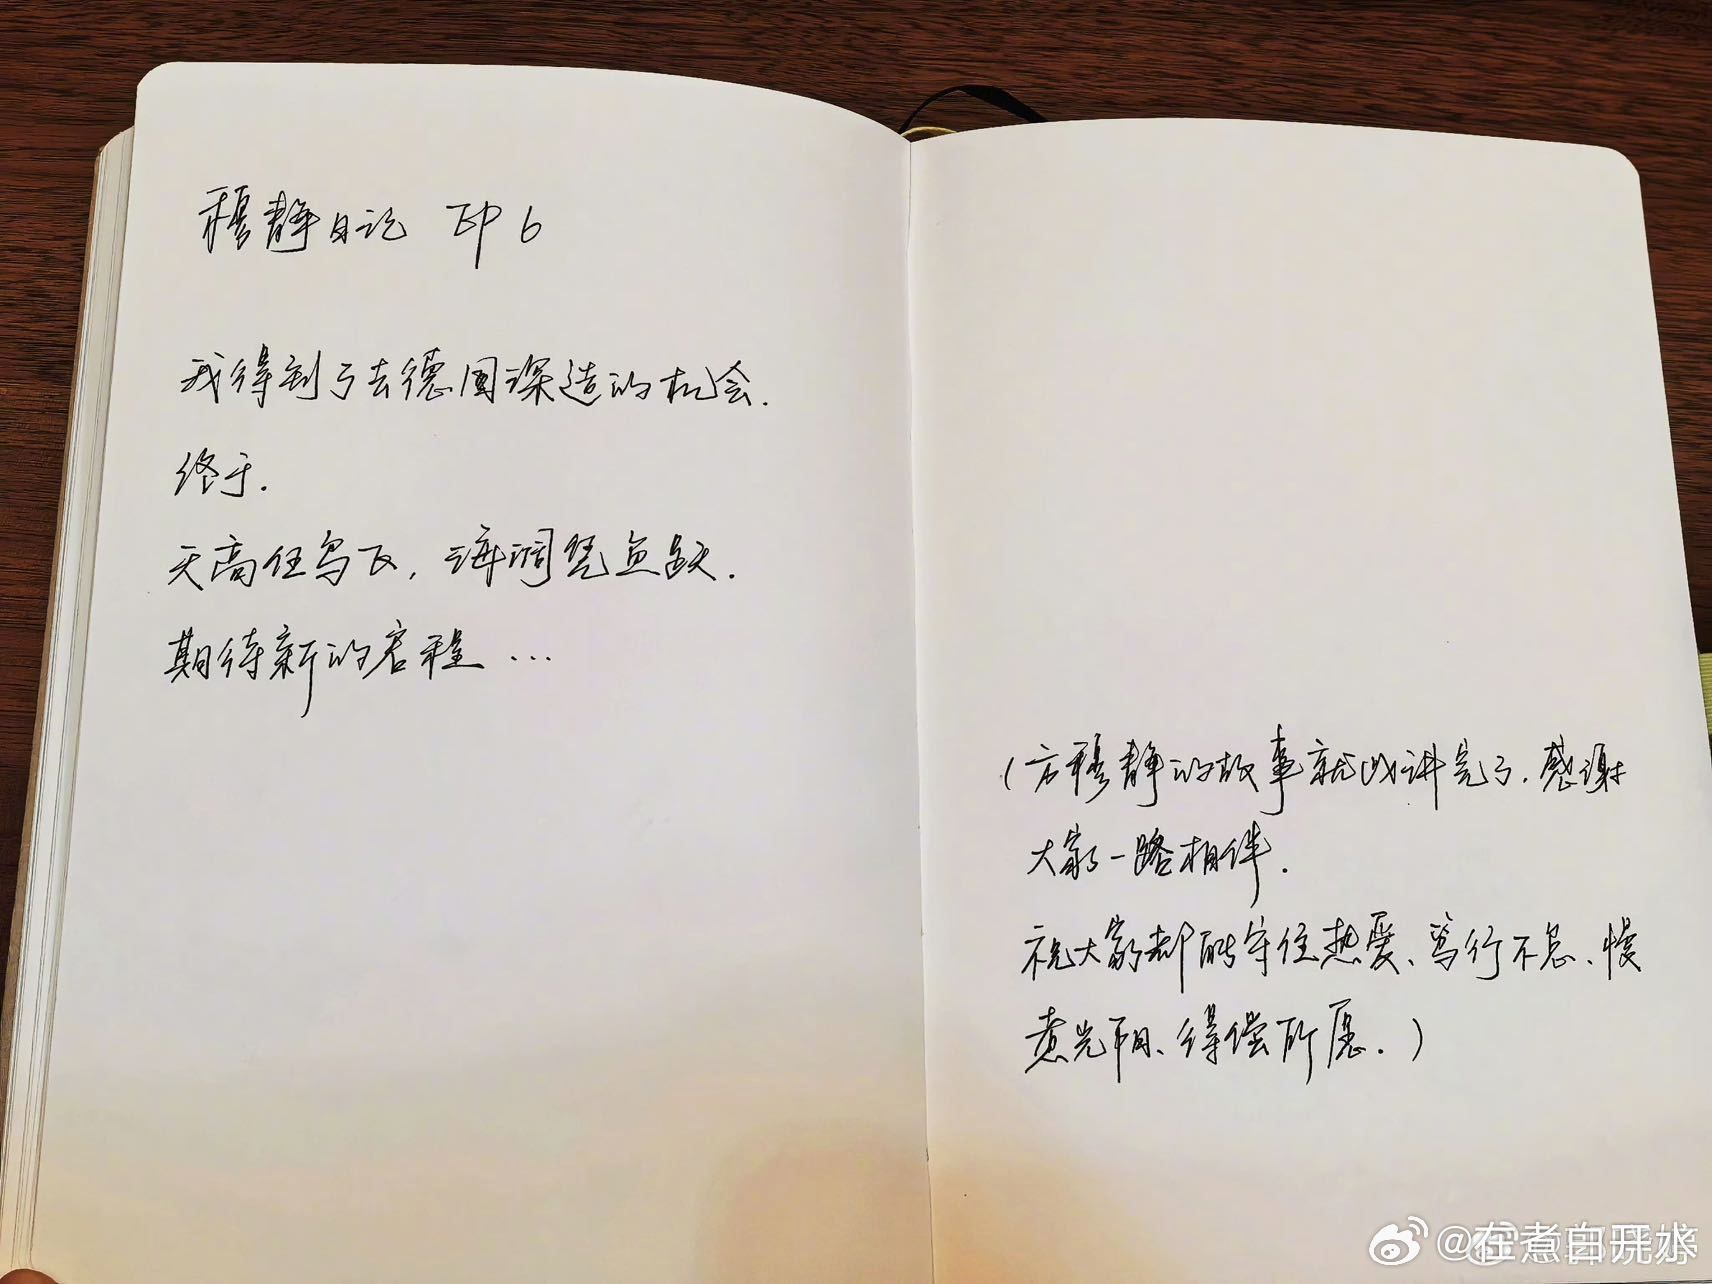 穆静日记 EP 6
我得到了去德国深造的机会.
终于.
天高任鸟飞, 海阔凭鱼跃.
期待新的启程 ...
(方穆静的故事就此讲完了. 感谢
大家一路相伴.
祝大家都能守住热爱、笃行不怠、慢
煮光阴、得偿所愿. )
@在煮白开水